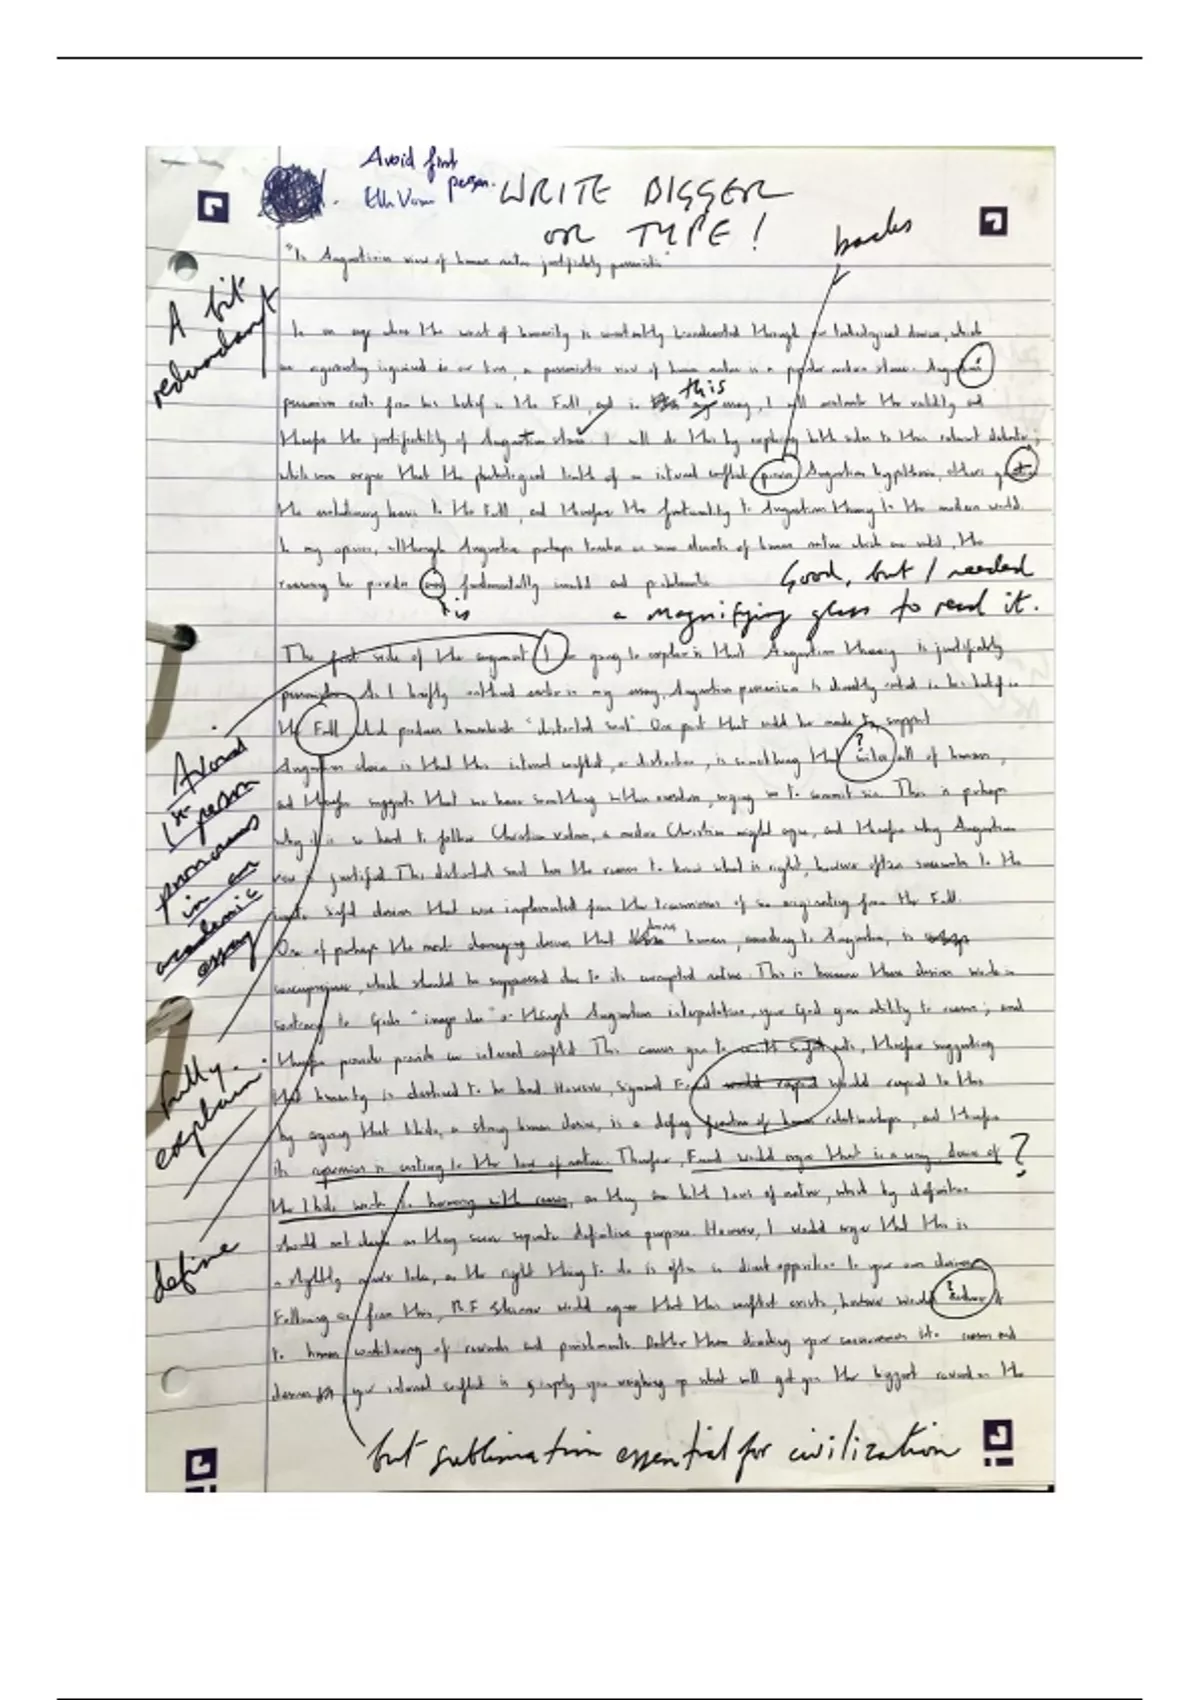 Avoid first
person.
WRITE BIGGER
OR TYPE!
backs
"Is Augustinian view of human nature justifiably pessimistic"
A bit
redundant
In an age where the worst of humanity is constantly broadcasted through our technological devices, which
are a pessimistic view of human nature is a popular modern stance. Augustine's
this
pessimism roots from his belief in the Fall, and in my essay, I will evaluate the validity and
therefore the justifiability of Augustine's stance. I will do this by exploring both sides to this debate;
while some argue that the psychological truth of an internal conflict proves Augustine's hypothesis, others
the evolutionary basis to the Fall, and therefore the of Augustine's theory to the modern world.
In my opinion, although Augustine perhaps touches on some elements of human nature which are valid, the
reasoning he provides are fundamentally invalid and problematic.
is
Good, but I needed
a magnifying glass to read it.
The first side of the argument I am going to explore is that Augustine's theory is justifiably
pessimistic. As I briefly outlined earlier in my essay, Augustine's pessimism is directly rooted in his belief in
the Fall which produces "distorted soul". One point that could be made to support
?
Augustine's claim is that this internal conflict, or distortion, is something that all of humans,
and therefore suggests that we have something within ourselves, urging us to commit sin. This is perhaps
why it is so hard to follow Christian values, a modern Christian might argue, and therefore why Augustine's
view is justified. This distorted soul has the reason to know what is right, however often succumbs to the
sinful desires that were implemented from the transmission of sin originating from the Fall.
Avoid
1st person
pronouns
in an
academic
essay
One of perhaps the most damaging desires that humans, according to Augustine, is
concupiscence, which should be suppressed due to its corrupted nature. This is because these desires work in
contrary to God's "imago dei" or through Augustine's interpretation, your God given ability to reason; and
therefore provides an internal conflict. This causes you to commit sinful acts, therefore suggesting
that humanity is destined to be bad. However, Sigmund Freud would respond to this
by arguing that libido, a strong human desire, is a defining function of human relationships, and therefore
its repression is contrary to the law of nature. Therefore, Freud would argue that in a way, desire of ?
the libido works in harmony with reason, as they are both laws of nature, which by definition
Fully
explain.
define
should not clash as they serve separate definitive purposes. However, I would argue that this is
a slightly naive take, as the right thing to do is often in direct opposition to your own desires.
?
Following on from this, B.F Skinner would agree that this conflict exists, however would it
to human conditioning of rewards and punishments. Rather than dividing your consciousness into reason and
desires, your internal conflict is simply you weighing up what will get you the biggest reward in the
but sublimation essential for civilization